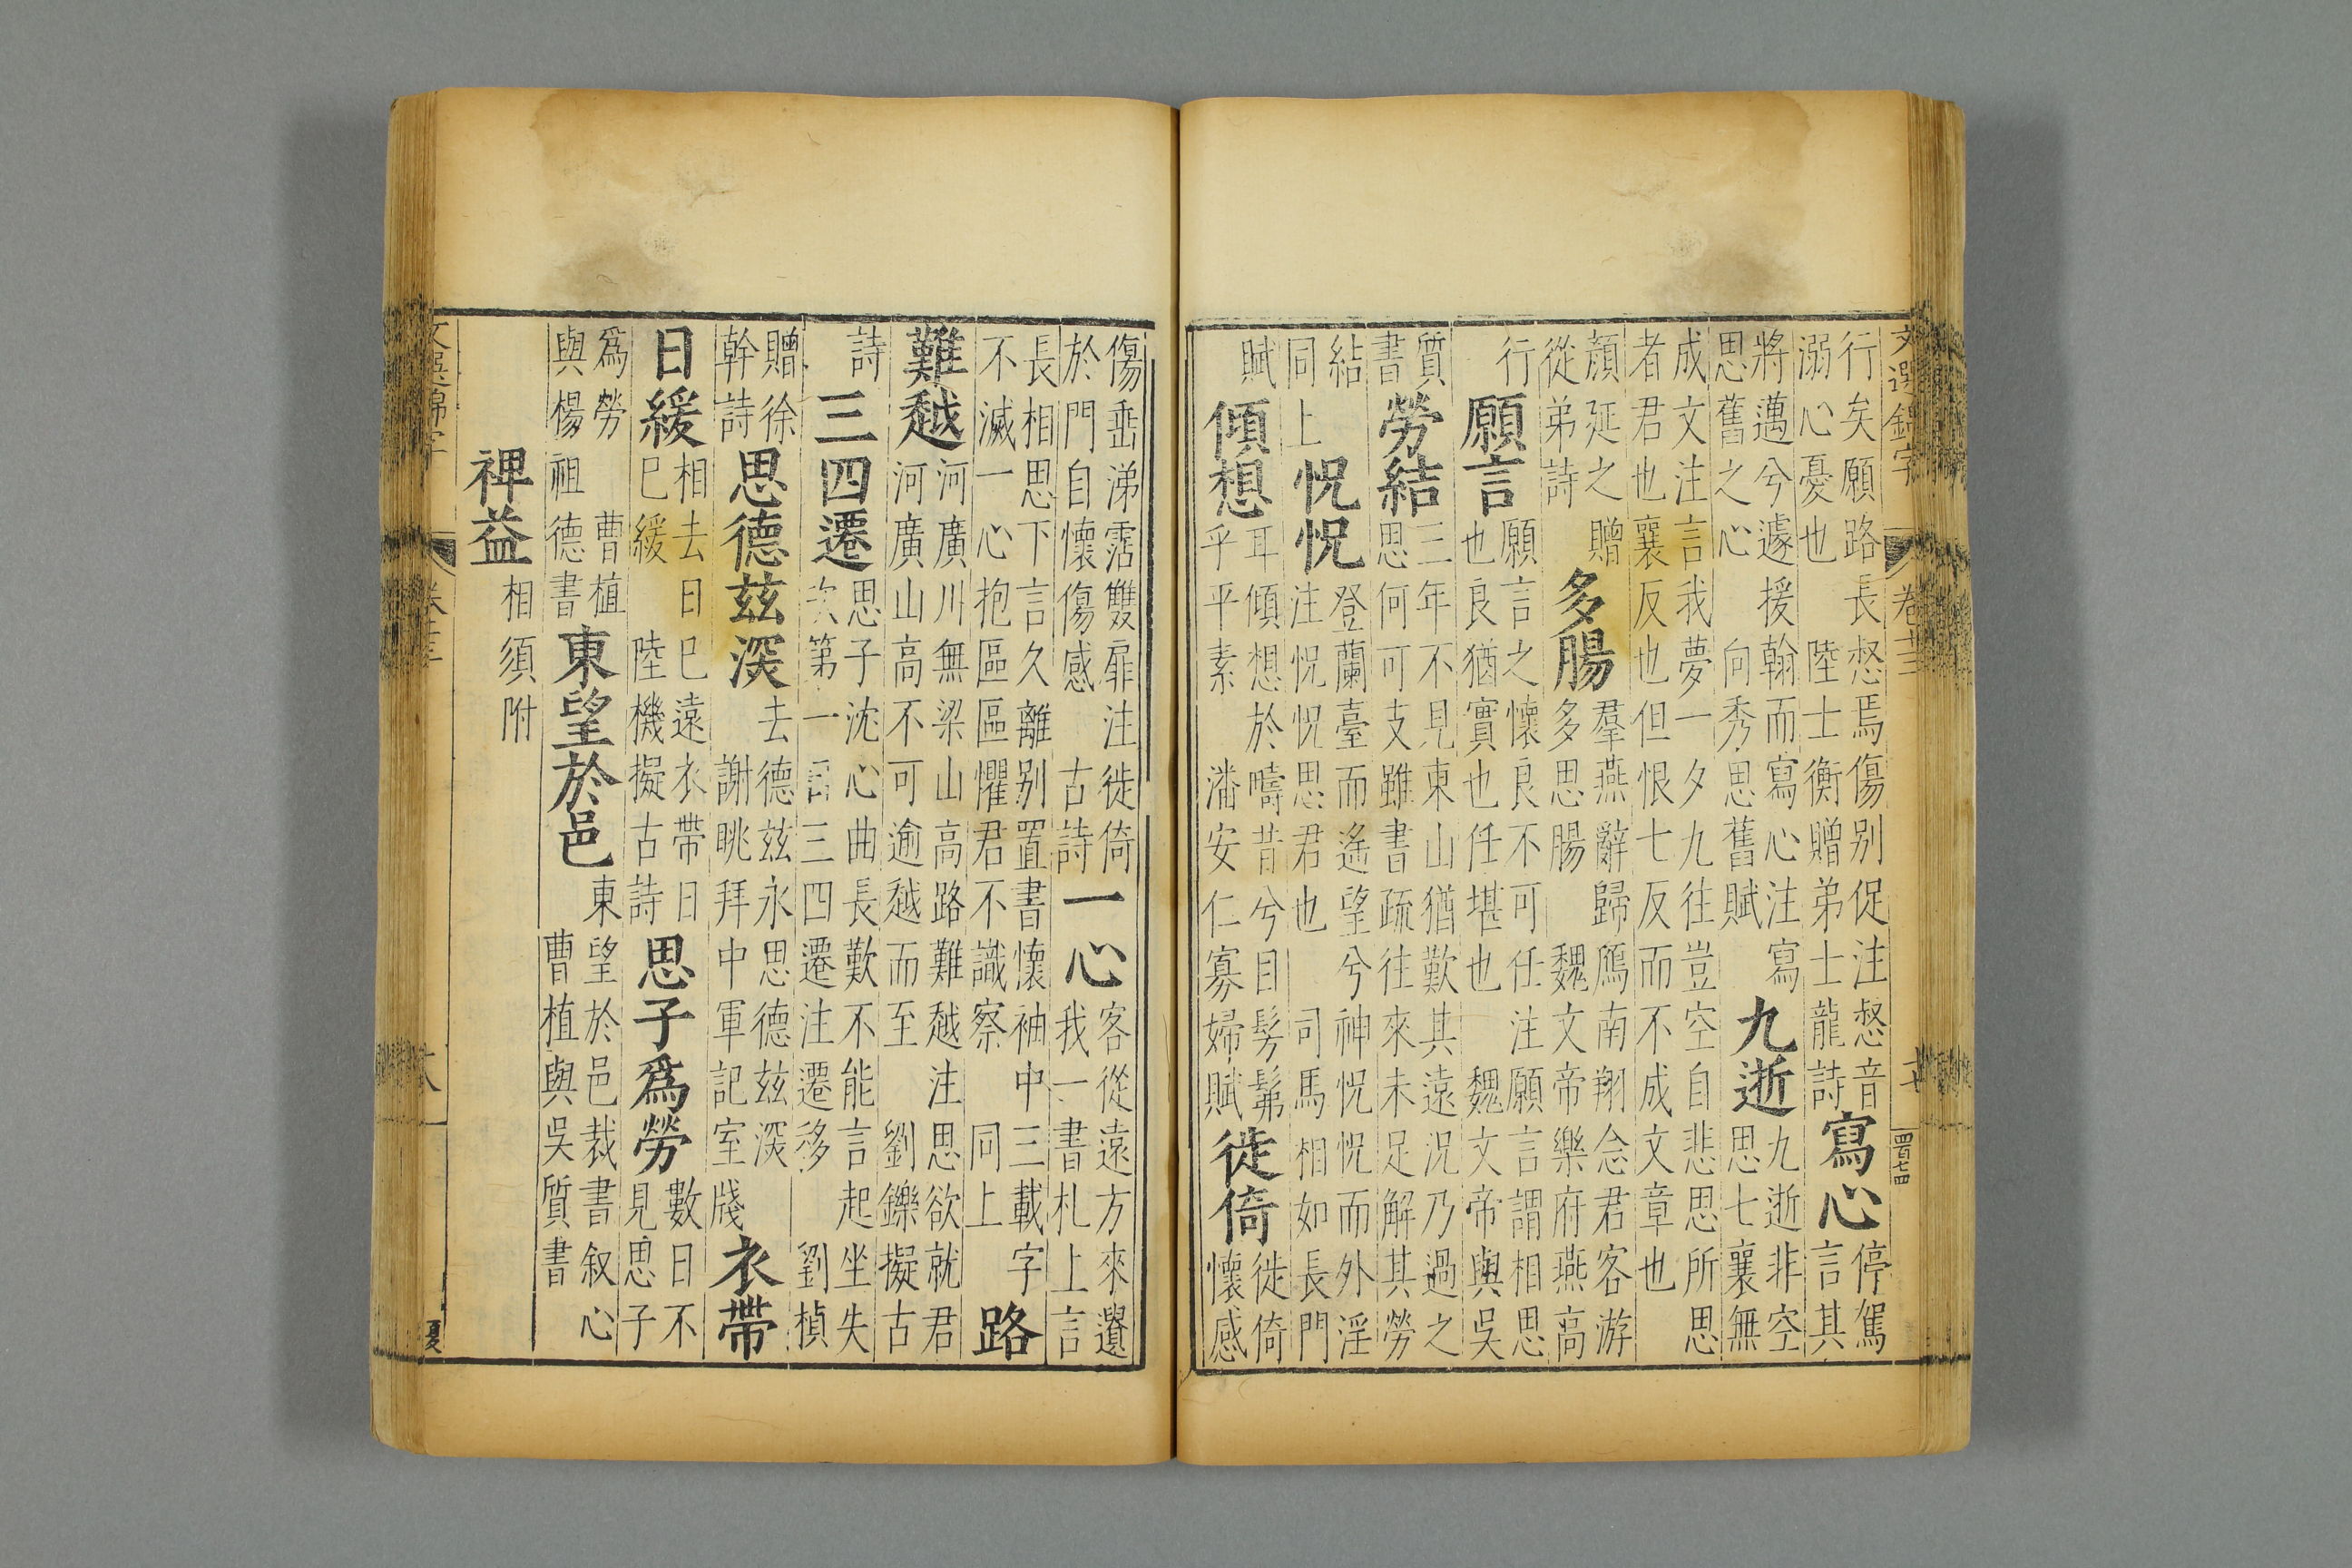 文選錦字 卷廿三
行矣願路長惄焉傷别促注惄音
溺心憂也 陸士衡贈弟士龍詩
寫心
停駕
言其
將邁兮遽援翰而寫心注寫
思舊之心 向秀思舊賦
九逝
九逝非空
思七襄無
成文注言我夢一夕九往豈空自悲思所思
者君也襄反也但恨七反而不成文章也
顏延之 贈
從弟詩
多腸
羣燕辭歸鴈南翔念君客游
多思腸 魏文帝樂府燕高
行
願言
願言之懷良不可任注願言謂相思
也良猶實也任堪也 魏文帝與吳
質
書
勞結
三年不見東山猶歎其遠況乃過之
思何可支雖書疏往來未足解其勞
結
同上
怳怳
登蘭臺而遙望兮神怳怳而外淫
注怳怳思君也 司馬相如長門
賦
傾想
耳傾想於疇昔兮目髣髴
乎平素 潘安仁寡婦賦
徙倚
徙倚
懷感
傷垂涕霑雙扉注徙倚
於門自懷傷感 古詩
一心
客從遠方來遺
我一書札上言
長相思下言久離别置書懷袖中三載字
不滅一心抱區區懼君不識察 同上
路
難越
河廣川無梁山高路難越注思欲就君
河廣山高不可逾越而至 劉鑠擬古
詩
三四遷
思子沈心曲長歎不能言起坐失
次第一日三四遷注遷移 劉楨
贈徐
幹詩
思德茲深
去德茲永思德茲深
謝眺拜中軍記室牋
衣帶
日緩
相去日巳遠衣帶日
巳緩 陸機擬古詩
思子爲勞
數日不
見思子
爲勞 曹植
與楊祖德書
東望於邑
東望於邑裁書叙心
曹植與吳質書
裨益
相須附